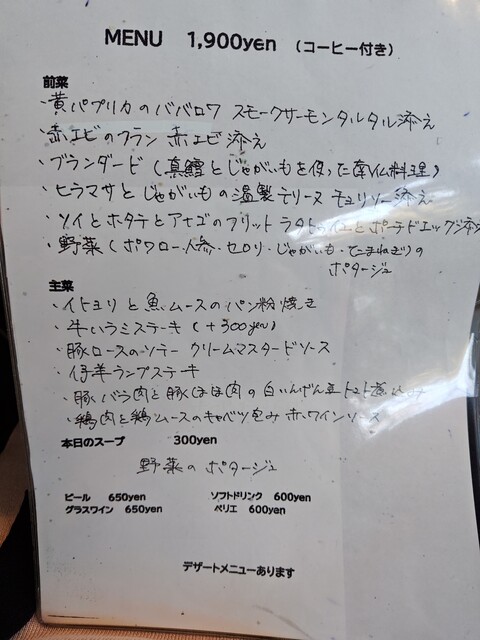 MENU 1,900yen （コーヒー付き）
前菜
・黄パプリカのババロワ スモークサーモンタルタル添え
・赤エビのフラン 赤エビ添え
・ブランダード（真鱈とじゃがいもを使った南仏料理）
・ヒラマサとじゃがいもの温製テリーヌ チョリソー添え
・ソイとホタテとアナゴのフリット ラタトゥイユとポーチドエッグ添え
・野菜（ポワロー・人参・セロリ・じゃがいも・たまねぎ）の
ポタージュ
主菜
・イトヨリと魚ムースのパン粉焼き
・牛ハラミステーキ（+300yen）
・豚ロースのソテー クリームマスタードソース
・仔羊ランプステーキ
・豚バラ肉と豚ほほ肉の白いんげん豆トマト煮込み
・鶏肉と鶏ムースのキャベツ包み 赤ワインソース
本日のスープ 300yen
野菜のポタージュ
ビール 650yen ソフトドリンク 600yen
グラスワイン 650yen ペリエ 600yen
デザートメニューあります